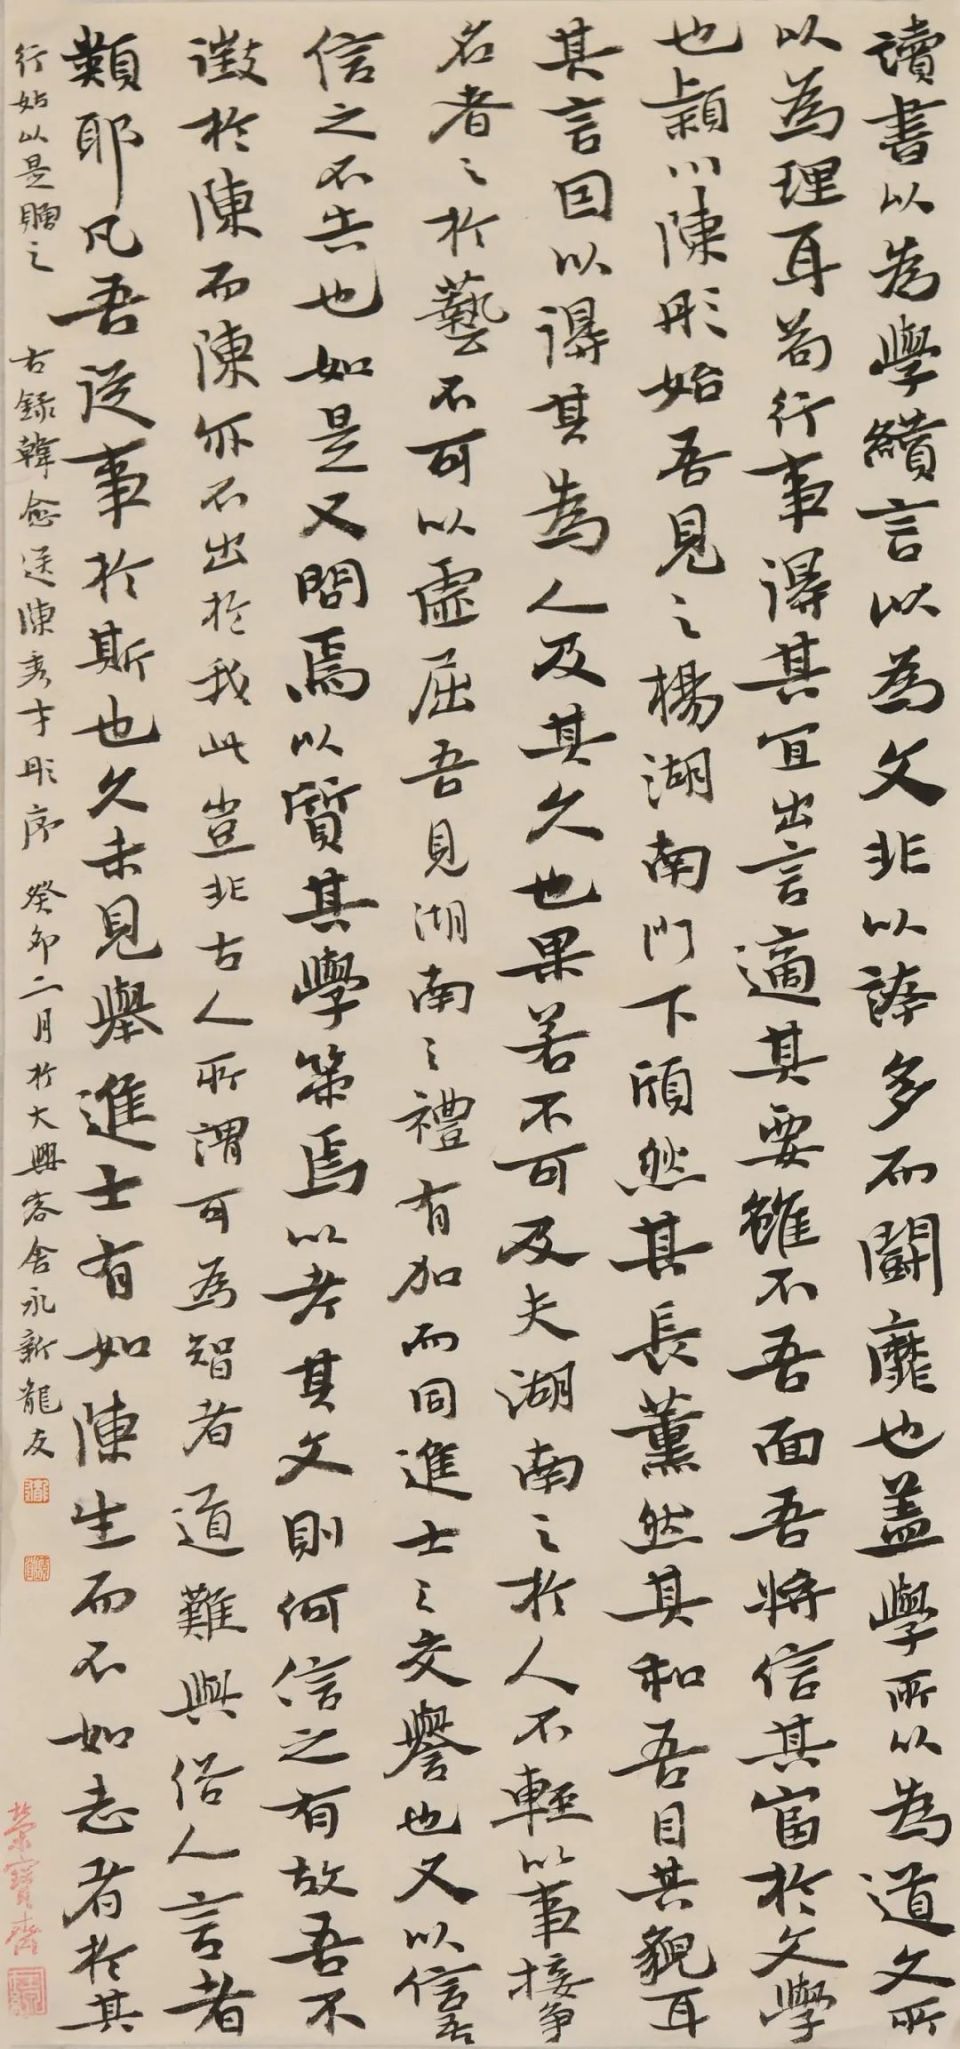 讀書以為學纘言以為文非以誇多而鬭靡也蓋學所以為道文所
以為理耳苟行事得其宜出言適其要雖不吾面吾將信其富於文學
也潁川陳彤始吾見之楊湖南門下頎然其長薰然其和吾目其貌耳
其言因以得其為人及其久也果若不可及夫湖南之於人不輕以事接爭
名者之於藝不可以虛屈吾見湖南之禮有加而同進士之交譽也又以信吾
信之不失也如是又問焉以質其學策焉以考其文則何信之有故吾不
徵於陳而陳亦不出於我此豈非古人所謂可為智者道難與俗人言者
類耶凡吾從事於斯也久未見舉進士有如陳生而不如志者於其
行姑以是贈之 右錄韓愈送陳秀才彤序 癸卯二月於大興客舍永新龍友
榮寶齋